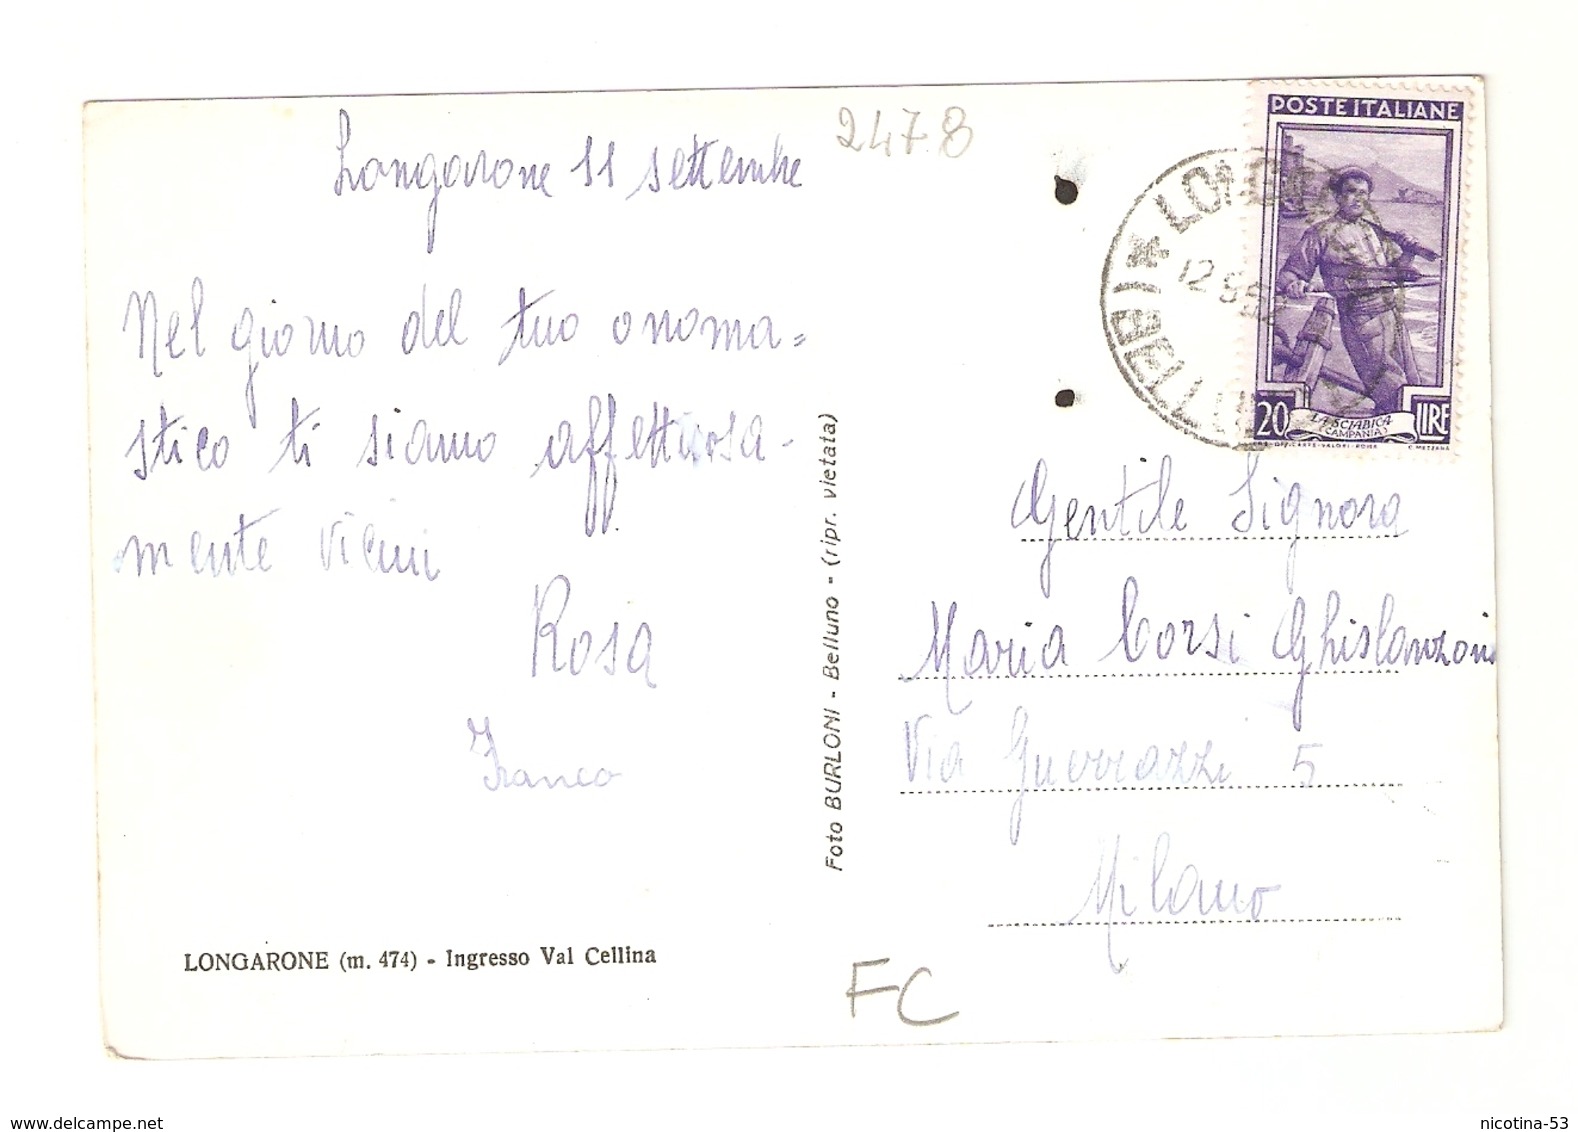 Longarone 11 settembre
2478
Nel giorno del tuo onoma=
stico ti siamo affettuosa-
mente vicini
Rosa
Franco
LONGARONE (m. 474) - Ingresso Val Cellina
Foto BURLONI - Belluno - (ripr. vietata)
POSTE ITALIANE
20 LIRE
LA SCIABICA
(CAMPANIA)
12.9.52
Gentile Signora
Maria Corsi Ghislanzoni
Via Guerrazzi 5
Milano
FC
www.delcampe.net
nicotina-53